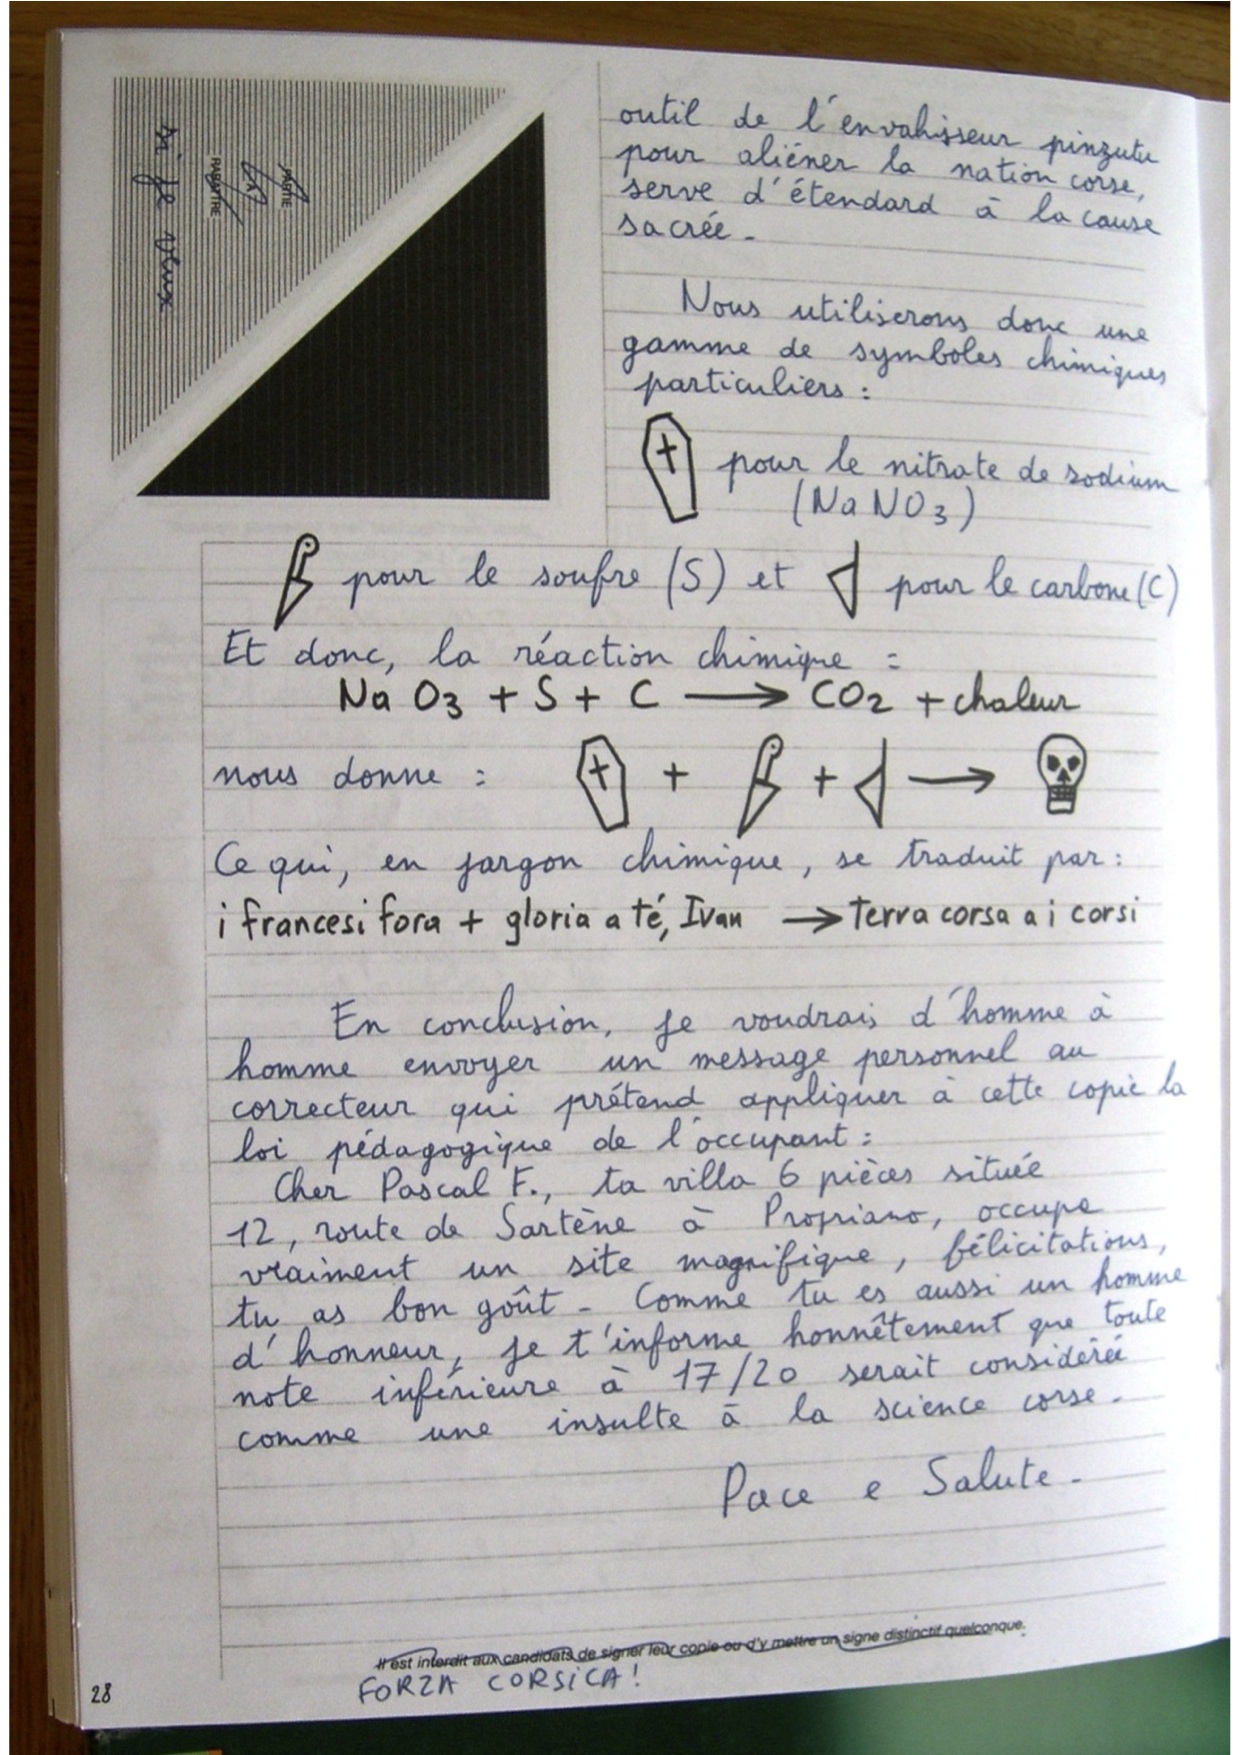 si je veux
PARTIE
A
RABATTRE
outil de l'envahisseur pinzutu
pour aliéner la nation corse,
serve d'étendard à la cause
sacrée.
Nous utiliserons donc une
gamme de symboles chimiques
particuliers :
pour le nitrate de sodium
(NaNO3)
pour le soufre (S) et pour le carbone (C)
Et donc, la réaction chimique :
Na O3 + S + C → CO2 + chaleur
nous donne : + + →
Ce qui, en jargon chimique, se traduit par :
i francesi fora + gloria a té, Ivan → Terra corsa a i corsi
En conclusion, je voudrais d'homme à
homme envoyer un message personnel au
correcteur qui prétend appliquer à cette copie la
loi pédagogique de l'occupant :
Cher Pascal F., ta villa 6 pièces située
12, route de Sartène à Propriano, occupe
vraiment un site magnifique, félicitations,
tu as bon goût. Comme tu es aussi un homme
d'honneur, je t'informe honnêtement que toute
note inférieure à 17/20 serait considérée
comme une insulte à la science corse.
Pace e Salute.
Il est interdit aux candidats de signer leur copie ou d'y mettre un signe distinctif quelconque.
FORZA CORSICA !
28